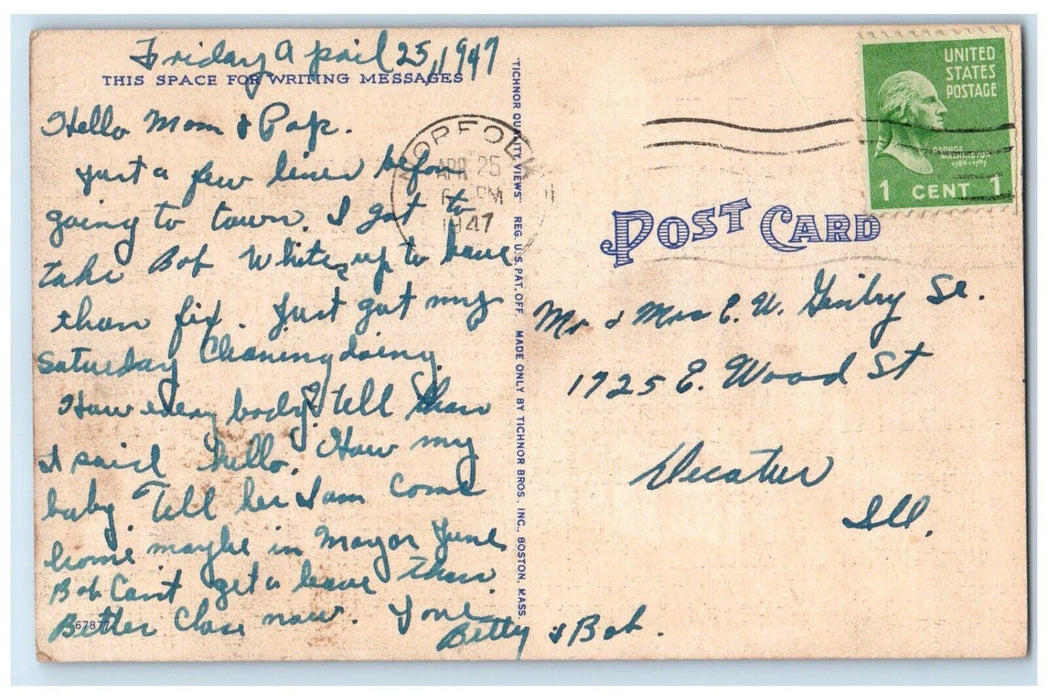 Friday April 25, 1947
THIS SPACE FOR WRITING MESSAGES
Hello Mom & Pop.
Just a few lines before
going to town. I got to
take Bob Whites up to have
them fix. Just got my
Saturday Cleaning doing.
How every body? Tell them
I said hello. How my
baby Tell her I am come
home maybe in May or June
Bob Can't get a leave than.
Better Close now. Love
Betty & Bob.
67877
TICHNOR QUALITY VIEWS REG. U.S. PAT. OFF. MADE ONLY BY TICHNOR BROS. INC., BOSTON, MASS.
NORFOLK
APR 25
6 PM
1947
UNITED
STATES
POSTAGE
GEORGE
WASHINGTON
1789-1797
1 CENT 1
POST CARD
Mr & Mrs E. W. Sr.
1725 E. Wood St
Decatur
Ill.